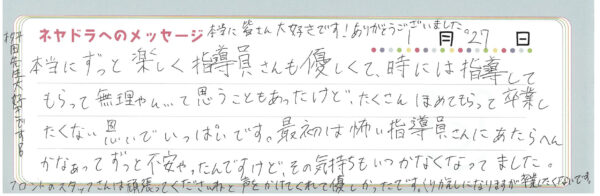 本当に皆さん大好きです！ありがとうございました
ネヤドラへのメッセージ 1月27日
本当にずっと楽しく指導員さんも優しくて、時には指導して
もらって無理やん...て思うこともあったけど、たくさんほめてもらって卒業し
たくない思いでいっぱいです。最初は怖い指導員さんにあたらへん
かなぁってずっと不安やったんですけど、その気持ちもいつかなくなってました。
フロントのスタッフさんは頑張ってくださいねと声をかけてくれて優しかったです。くり返しになりますが卒業したくないです。
田先生大好きです